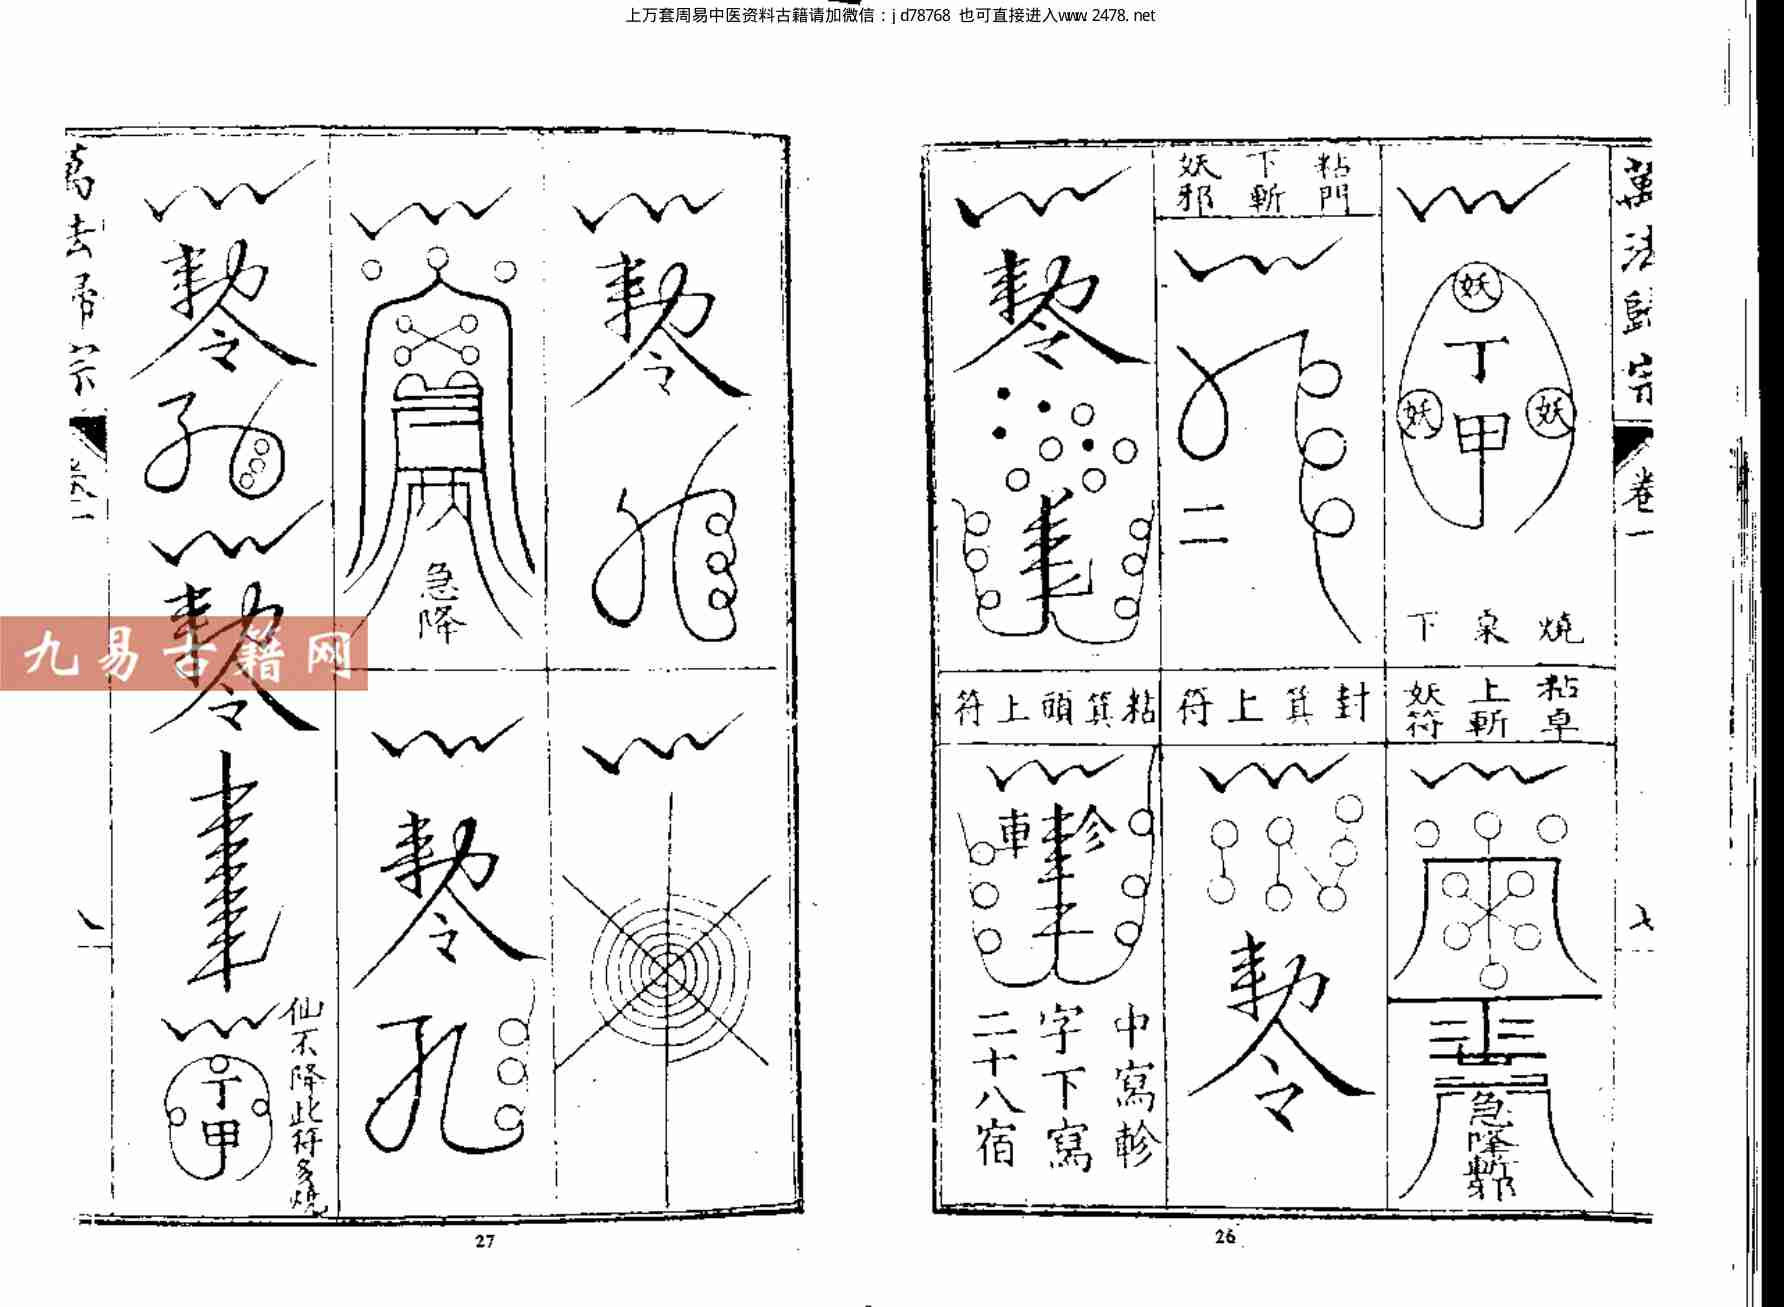 上万套周易中医资料古籍请加微信：jd78768 也可直接进入www.2478.net
萬法歸宗
卷一
七
妖
丁甲
妖
妖
燒桌下
粘門下斬妖邪
二
敕令
粘卓上斬妖符
封箕上符
粘箕頭上符
急降斬邪
敕令
車
中寫軫
字下寫
二十八宿
26
敕令
急降
敕令
敕令
孔
敕令
丁甲
仙不降此符多燒
敕令
孔
萬法歸宗
卷一
九易古籍网
27